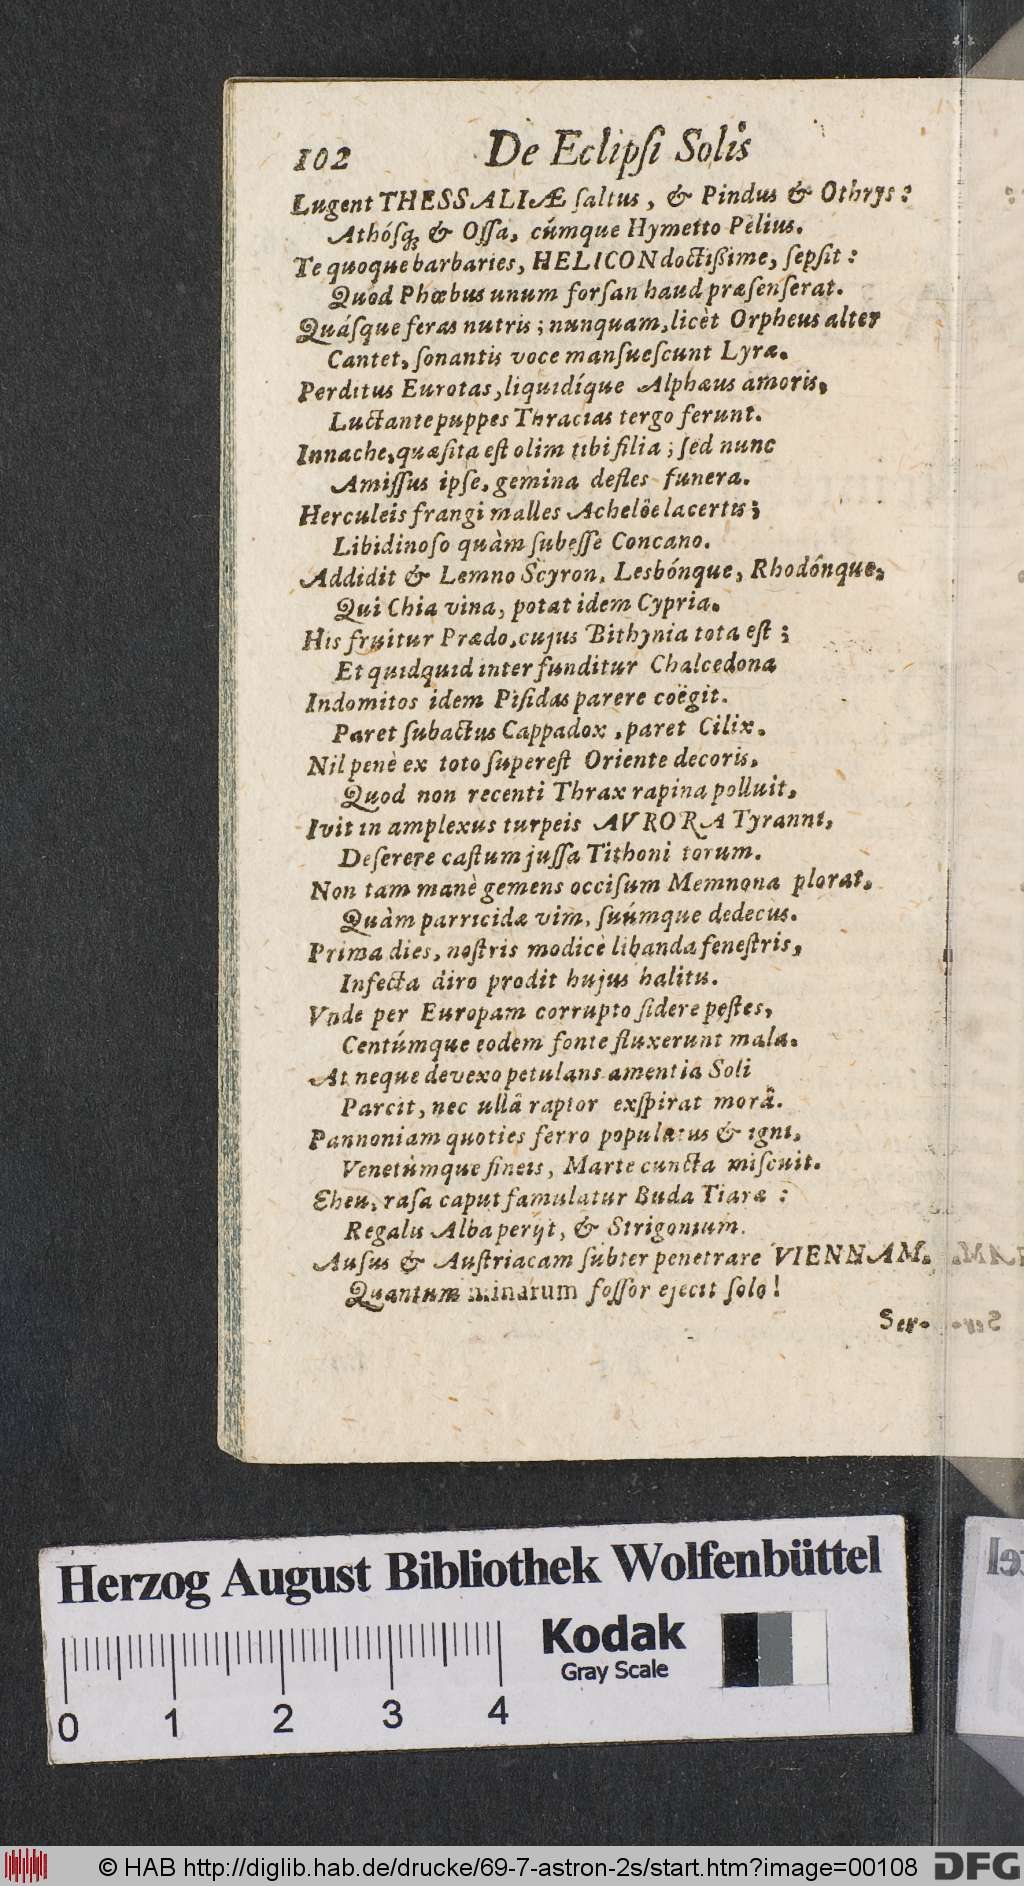 102 De Eclipſi Solis
Lugent THESSALIÆ ſaltus, & Pindus & Othrys:
Athóſq; & Oſſa, cúmque Hymetto Pelius.
Te quoque barbaries, HELICON doctißime, ſepſit:
Quòd Phœbus unum forſan haud præſenſerat.
Quáſque feras nutris; nunquam, licèt Orpheus alter
Cantet, ſonantis voce manſueſcunt Lyræ.
Perditus Eurotas, liquidíque Alphæus amoris,
Luctante puppes Thracias tergo ferunt.
Innache, quæſita eſt olim tibi filia; ſed nunc
Amiſſus ipſe, gemina defles funera.
Herculeis frangi malles Acheloë lacertis;
Libidinoſo quàm ſubeſſe Concano.
Addidit & Lemno Scyron, Lesbónque, Rhodónque,
Qui Chia vina, potat idem Cypria.
His fruitur Prædo, cujus Bithynia tota eſt;
Et quidquid inter funditur Chalcedona
Indomitos idem Piſidas parere coëgit.
Paret ſubactus Cappadox, paret Cilix.
Nil penè ex toto ſupereſt Oriente decoris,
Quod non recenti Thrax rapina polluit,
Ivit in amplexus turpeis AVRORA Tyranni,
Deſerere caſtum juſſa Tithoni torum.
Non tam manè gemens occiſum Memnona plorat,
Quàm parricidæ vim, ſuúmque dedecus.
Prima dies, noſtris modicè libanda feneſtris,
Infecta diro prodit hujus halitu.
Vnde per Europam corrupto ſidere peſtes,
Centúmque eodem fonte fluxerunt mala.
At neque devexo petulans amentia Soli
Parcit, nec ullâ raptor exſpirat morâ.
Pannoniam quoties ferro populatus & igni,
Venetúmque fineis, Marte cuncta miſcuit.
Eheu, raſa caput famulatur Buda Tiaræ:
Regalis Alba perijt, & Strigonium.
Auſus & Auſtriacam ſubter penetrare VIENNAM.
Quantum minarum foſſor ejecit ſolo!
Ser-
Herzog August Bibliothek Wolfenbüttel
Kodak
Gray Scale
0 1 2 3 4
© HAB http://diglib.hab.de/drucke/69-7-astron-2s/start.htm?image=00108 DFG